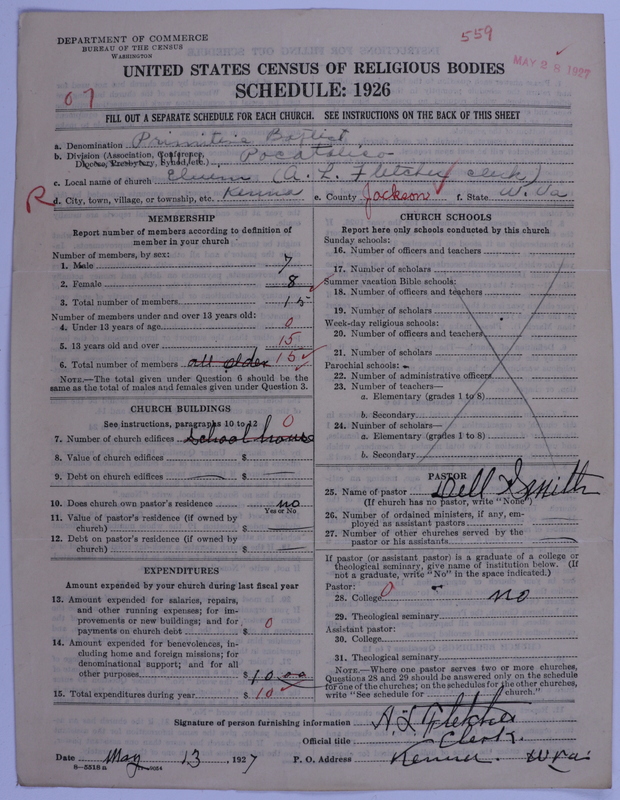 DEPARTMENT OF COMMERCE
BUREAU OF THE CENSUS
WASHINGTON
559
MAY 28 1927
UNITED STATES CENSUS OF RELIGIOUS BODIES
SCHEDULE: 1926
07
FILL OUT A SEPARATE SCHEDULE FOR EACH CHURCH. SEE INSTRUCTIONS ON THE BACK OF THIS SHEET
a. Denomination Primitive Baptist
b. Division (Association, Conference, Diocese, Presbytery, Synod, etc.) Pocatalico
c. Local name of church (A. L. Fletcher clerk)
R d. City, town, village, or township, etc. Kenna e. County Jackson f. State W. Va
MEMBERSHIP
Report number of members according to definition of
member in your church
Number of members, by sex:
1. Male 7
2. Female 8
3. Total number of members 15
Number of members under and over 13 years old:
4. Under 13 years of age 0
5. 13 years old and over 15
6. Total number of members all older 15
NOTE.—The total given under Question 6 should be the
same as the total of males and females given under Question 3.
CHURCH BUILDINGS
See instructions, paragraphs 10 to 12 0
7. Number of church edifices school house
8. Value of church edifices $
9. Debt on church edifices $
10. Does church own pastor's residence no
Yes or No
11. Value of pastor's residence (if owned by
church) $
12. Debt on pastor's residence (if owned by
church) $
EXPENDITURES
Amount expended by your church during last fiscal year
13. Amount expended for salaries, repairs,
and other running expenses; for im-
provements or new buildings; and for
payments on church debt $ 0
14. Amount expended for benevolences, in-
cluding home and foreign missions; for
denominational support; and for all
other purposes $ 10.00
15. Total expenditures during year $ 10
CHURCH SCHOOLS
Report here only schools conducted by this church
Sunday schools:
16. Number of officers and teachers
17. Number of scholars
Summer vacation Bible schools:
18. Number of officers and teachers
19. Number of scholars
Week-day religious schools:
20. Number of officers and teachers
21. Number of scholars
Parochial schools:
22. Number of administrative officers
23. Number of teachers—
a. Elementary (grades 1 to 8)
b. Secondary
24. Number of scholars—
a. Elementary (grades 1 to 8)
b. Secondary
PASTOR
25. Name of pastor Dell Smith
(If church has no pastor, write "None")
26. Number of ordained ministers, if any, em-
ployed as assistant pastors
27. Number of other churches served by the
pastor or his assistants
If pastor (or assistant pastor) is a graduate of a college or
theological seminary, give name of institution below. (If
not a graduate, write "No" in the space indicated.)
Pastor:
28. College 0 no
29. Theological seminary
Assistant pastor:
30. College
31. Theological seminary
NOTE.—Where one pastor serves two or more churches,
Questions 28 and 29 should be answered only on the schedule
for one of the churches; on the schedules for the other churches,
write "See schedule for church."
Signature of person furnishing information A L Fletcher
Official title Clerk.
Date May 13, 1927 P. O. Address Kenna. W Va.
8—5518 a